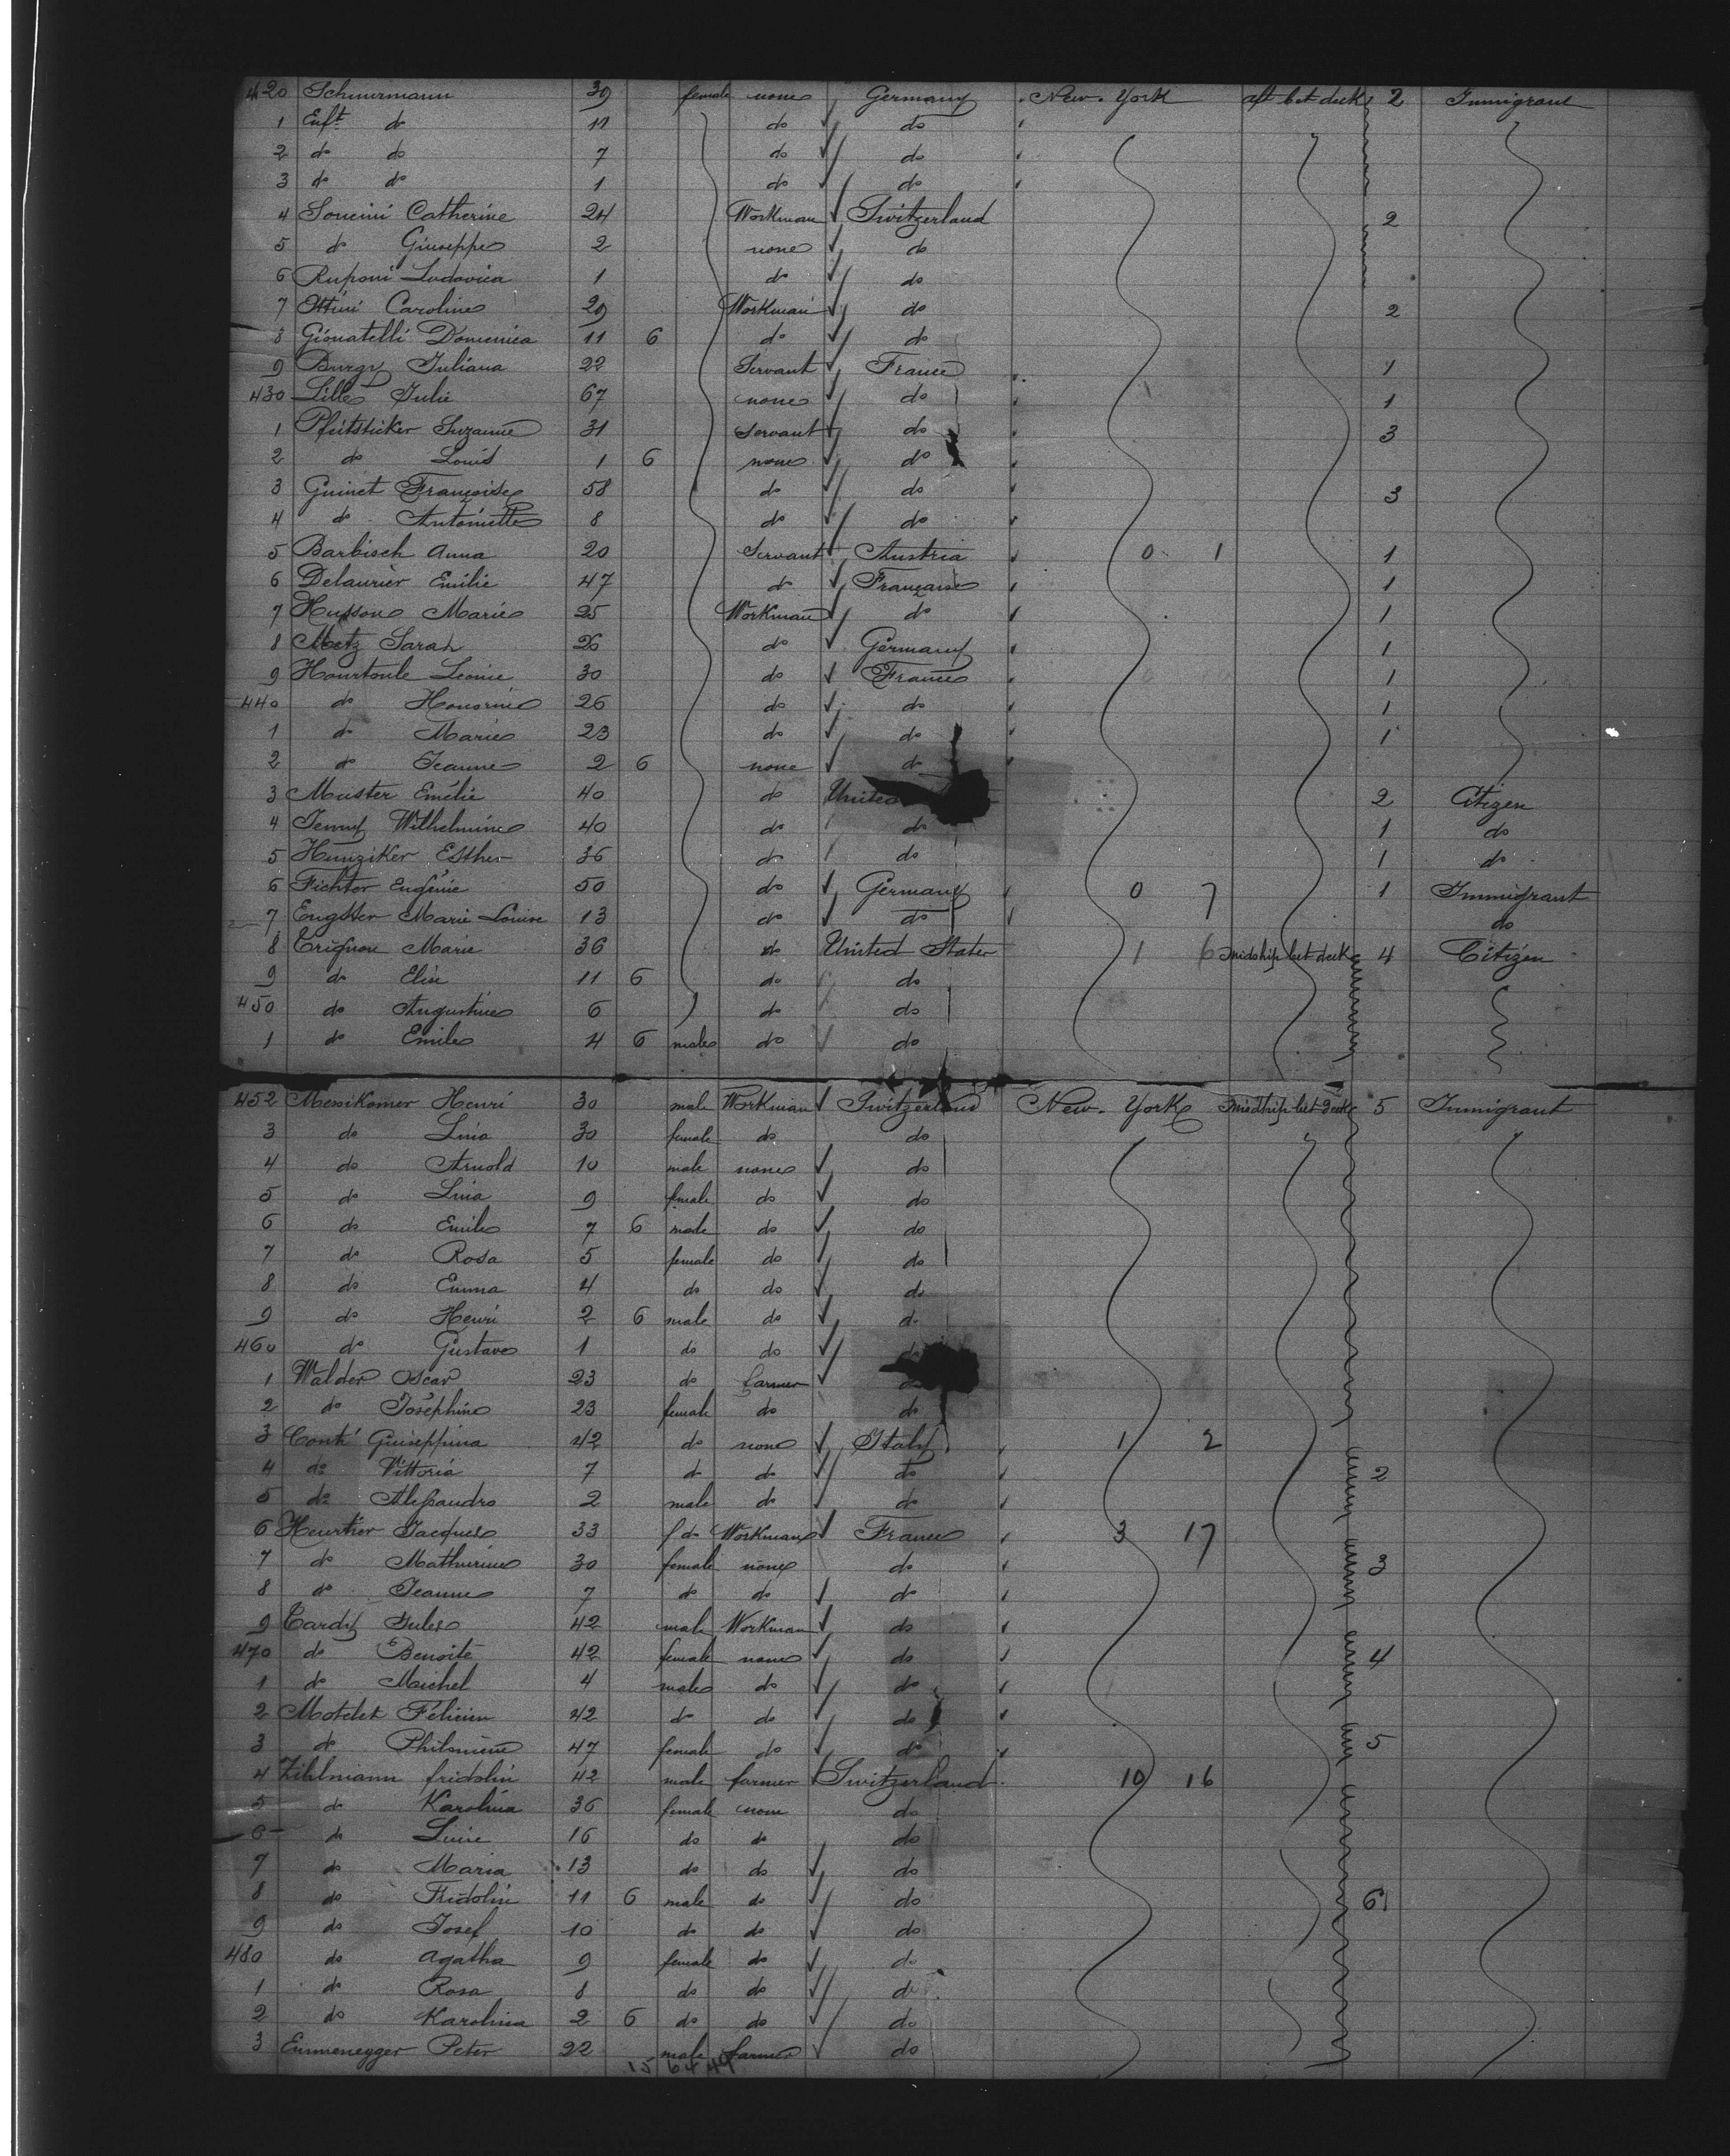 420 Schuurmann 39 female none Germany New-York aft bet deck 2 Immigrant
1 Enft do 11 do do
2 do do 7 do do
3 do do 1 do do
4 Soncini Catherine 24 Workman Switzerland 2
5 do Giuseppe 2 none do
6 Ruponi Ludovica 1 do do
7 Caroline 29 Workman do 2
8 Gionatelli Domenica 11 6 do do
9 Burgy Juliana 22 Servant France 1
430 Lille Julie 67 none do 1
1 Pfistsicker Suzanne 31 Servant do 3
2 do Louis 1 6 none do
3 Guinet Françoise 58 do do 3
4 do Antoinette 8 do do
5 Barbisch Anna 20 Servant Austria 0 1 1
6 Delaurier Emilie 47 do Française 1
7 Husson Marie 25 Workman do 1
8 Metz Sarah 26 do Germany 1
9 Hourtoule Leonie 30 do France 1
440 do Honorine 26 do do 1
1 do Marie 23 do do 1
2 do Jeanne 2 6 none do
3 Muster Emélie 40 do United 2 Citizen
4 Jenny Wilhelmine 40 do do 1 do
5 Hunziker Esther 36 do do 1 do
6 Fichter Eugénie 50 do Germany 0 7 1 Immigrant
7 Engster Marie Louise 13 do do do
8 Crignon Marie 36 do United States 1 6 midship bet deck 4 Citizen
9 do Elise 11 6 do do
450 do Augustine 6 do do
1 do Emile 4 6 male do do
452 Messikomer Henri 30 male Workman Switzerland New-York midship bet deck 5 Immigrant
3 do Lina 30 female do do
4 do Arnold 10 male none do
5 do Lina 9 female do do
6 do Emile 7 6 male do do
7 do Rosa 5 female do do
8 do Emma 4 do do do
9 do Henri 2 6 male do do
460 do Gustave 1 do do do
1 Walder Oscar 23 do farmer do
2 do Joséphine 23 female do do
3 Conti Guiseppina 42 do none Italy 1 2
4 do Vittoria 7 do do do 2
5 do Alessandro 2 male do do
6 Heurtier Jacques 33 do Workman France 3 17
7 do Mathurine 30 female none do 3
8 do Jeanne 7 do do do
9 Cardy Jules 42 male Workman do
470 do Benoite 42 female none do 4
1 do Michel 4 male do do
2 Motelet Félicien 42 do do do
3 do Philomène 47 female do do 5
4 Zihlmann fridolin 42 male farmer Switzerland 10 16
5 do Karolina 36 female none do
6 do Luise 16 do do do
7 do Maria 13 do do do
8 do Fridolin 11 6 male do do 6
9 do Josef 10 do do do
480 do Agatha 9 female do do
1 do Rosa 8 do do do
2 do Karolina 2 6 do do do
3 Emmenegger Peter 22 male farmer do
15 64 49